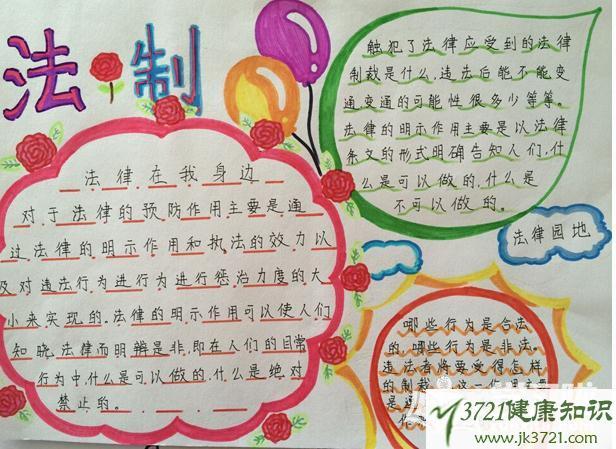 法制
法律在我身边
对于法律的预防作用主要是通
过法律的明示作用和执法的效力以
及对违法行为进行为进行惩治力度的大
小来实现的.法律的明示作用可以使人们
知晓,法律而明辨是非,即在人们的日常
行为中,什么是可以做的,什么是绝对
禁止的。
触犯了法律应受到的法律
制裁是什么,违法后能不能变
通,变通的可能性很多少等等。
法律的明示作用主要是以法律
条文的形式明确告知人们,什
么是可以做的,什么是
不可以做的。
法律园地
哪些行为是合法
的,哪些行为是非法。
违法者将要受得怎样
的制裁
这一作用主要
是通
M3721健康知识
www.jk3721.com